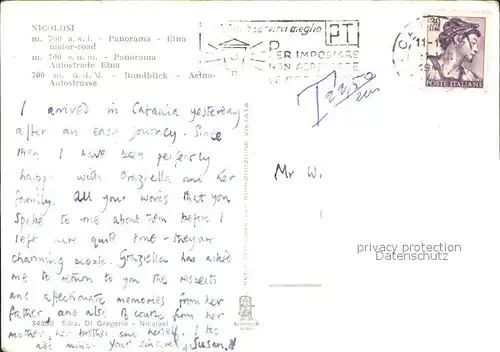 NICOLOSI
m. 700 a.s.l. - Panorama - Etna
under-road
m. 700 s.u.m. - Panorama
Autostrade Etna
700 m. ü.d.M. - Rundblick - Aetna-
Autostrasse
meglio
PT
PER IMPOSTARE
30
POSTE ITALIANE
I arrived in Catania yesterday
after an easy journey. Since
then I have been perfectly
happy with Graziella and her
family. All your words that you
spoke to me about them before I
left were quite true - they are
charming people. Graziella has asked
me to return to you the respects
and affectionate memories from her
father, and also of course from her
mother, her brother and herself. I too
mine. Your sincere Susan
Mr W
RIPRODUZIONE VIETATA
34898 Ediz. Di Gregorio - Nicolosi
privacy protection
Datenschutz